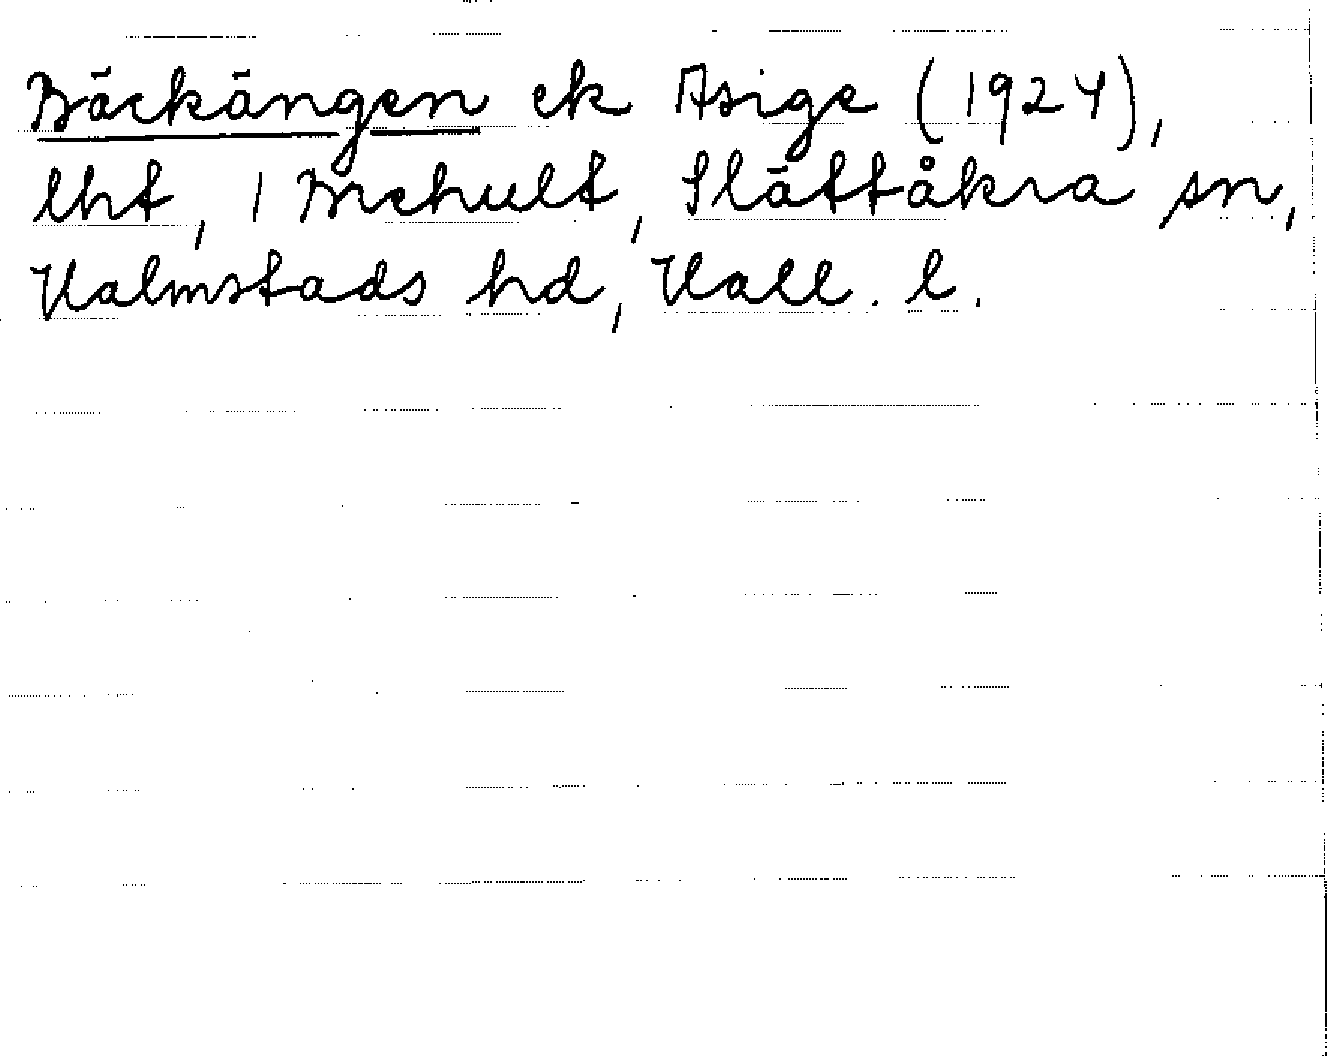 Bäckängen ek Asige (1924),
lht, 1 Brehult, Slättåkra sn,
Halmstads hd, Hall. l.